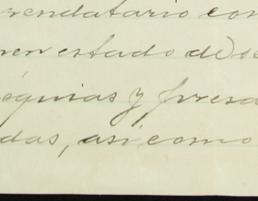 rendatario con
en estado de se
equias y frend
das, asi como